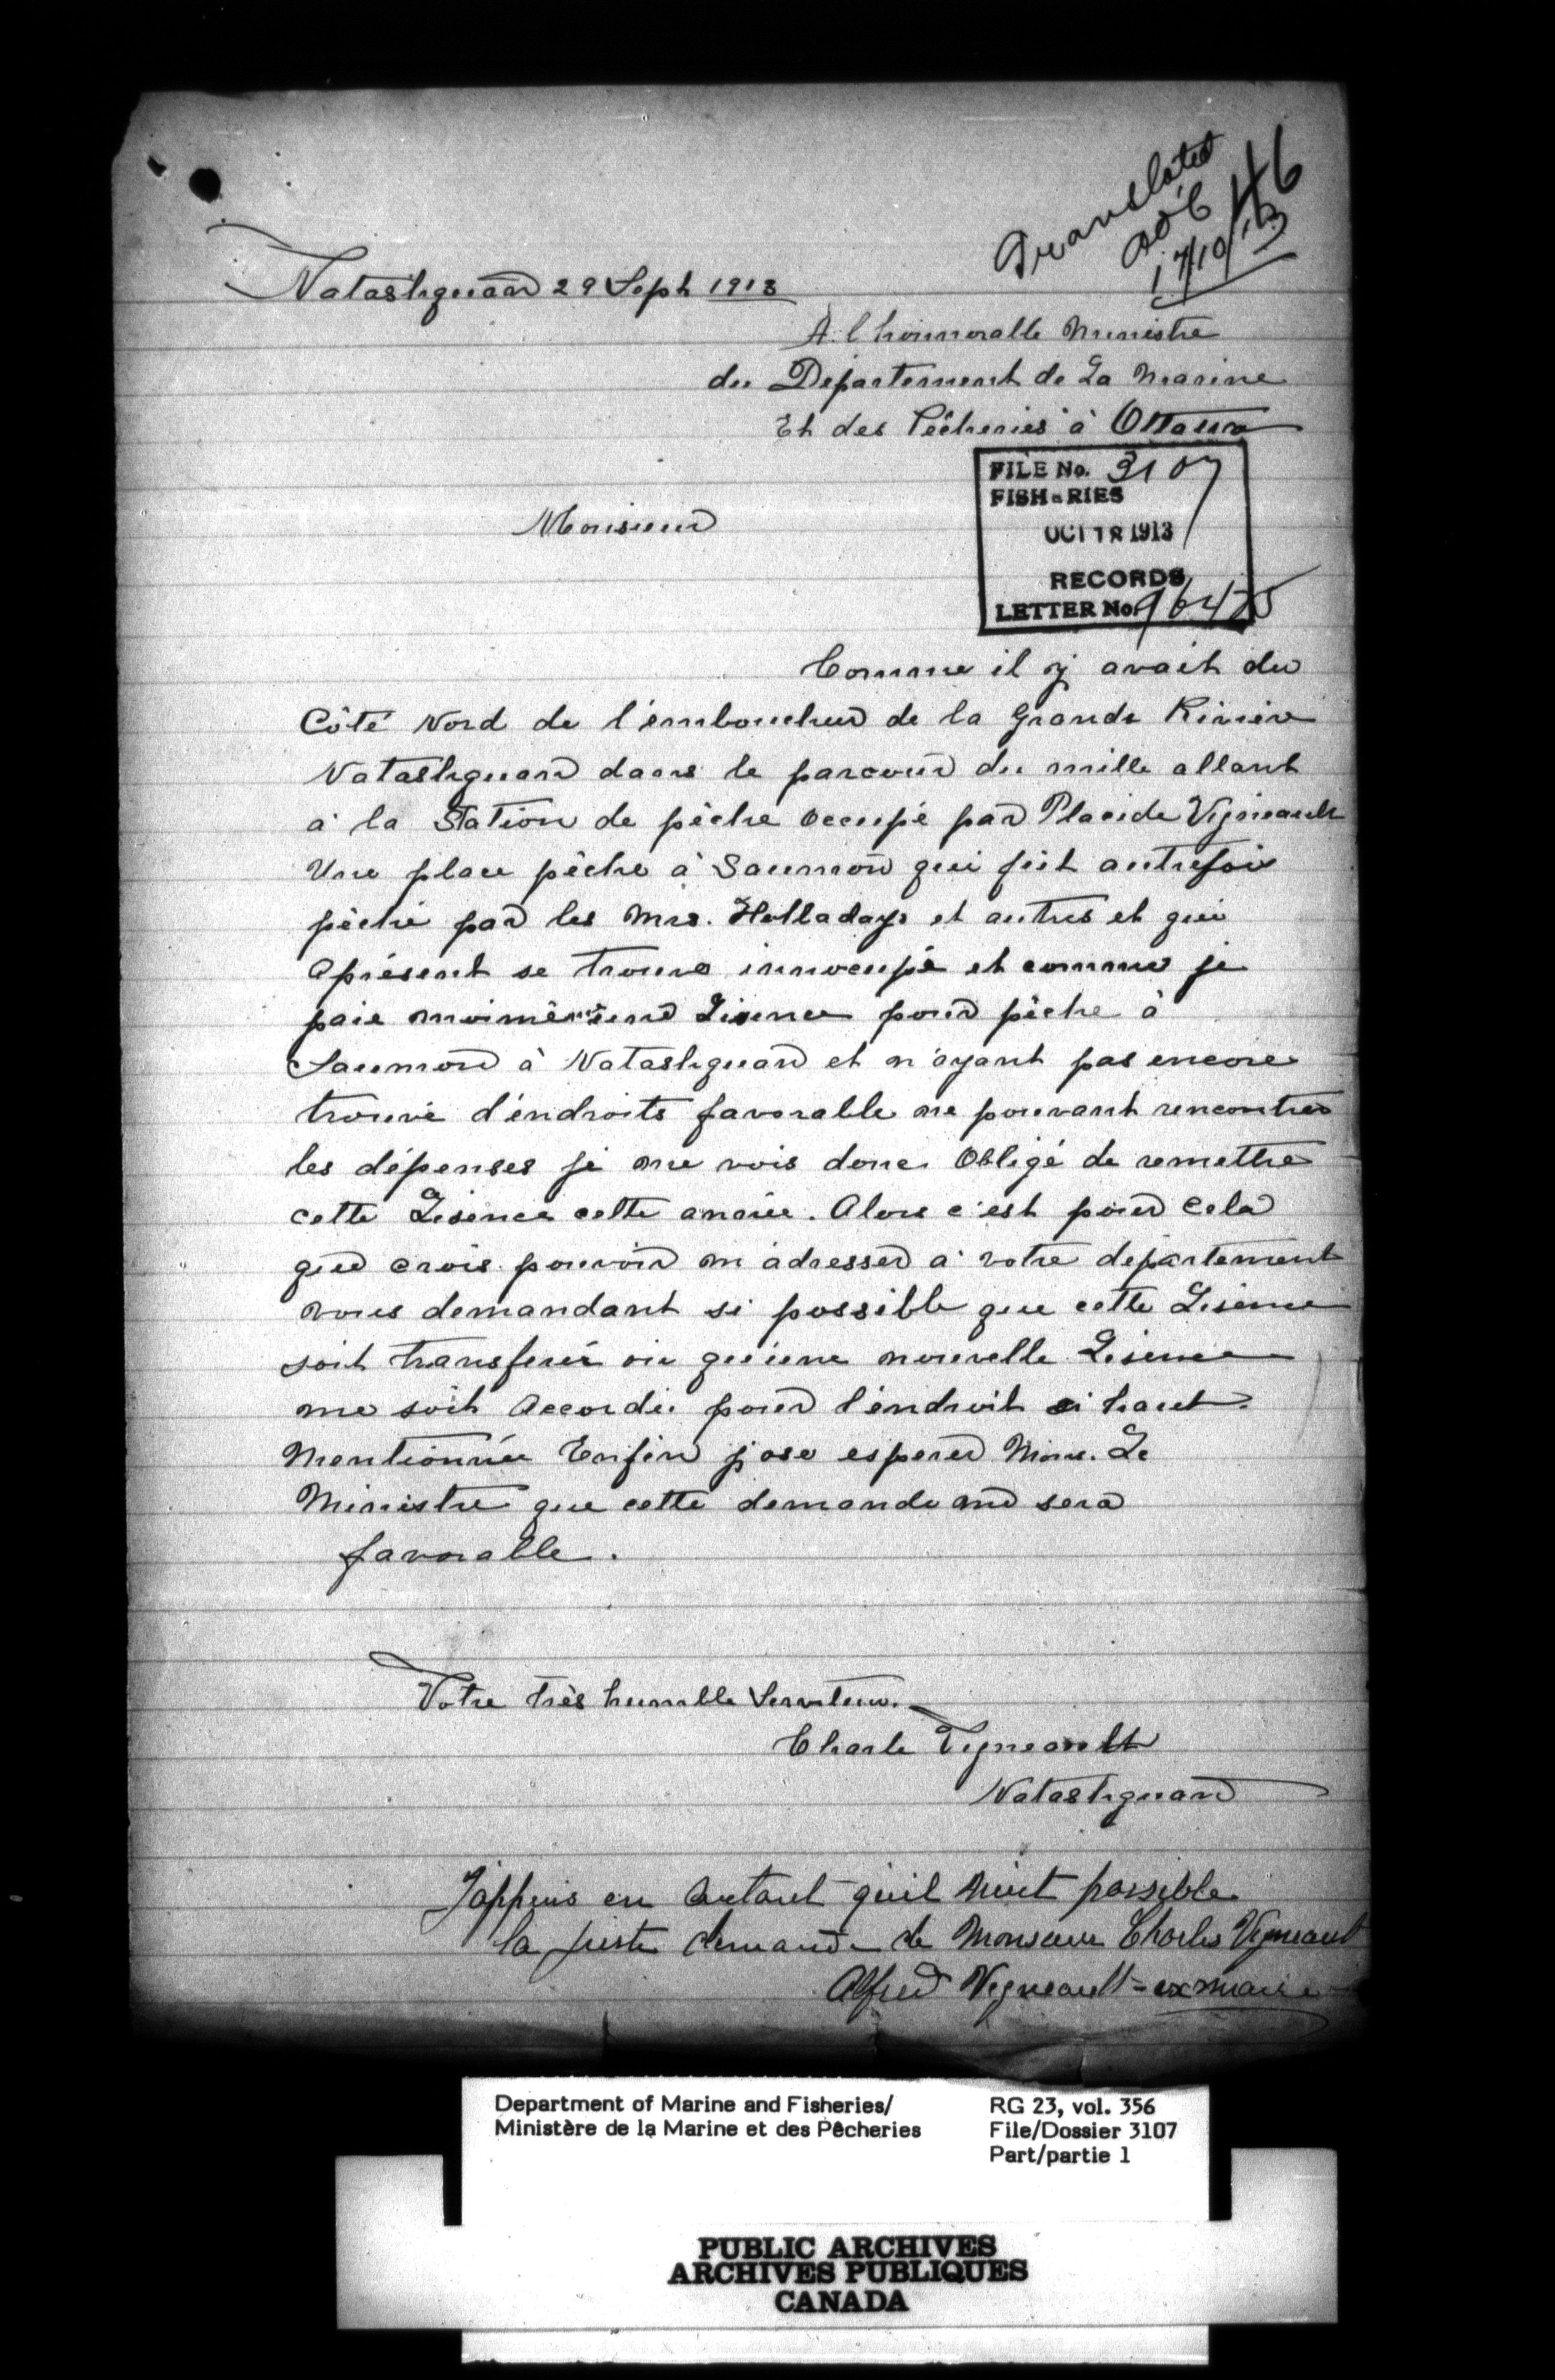 Translated
46
17/10/13
Natashquan 29 Sept 1913
A l'honnorable Ministre
du Département de La Marine
Et des Pêcheries à Ottawa
FILE No. 3107
FISHERIES
OCT 18 1913
RECORDS
LETTER No. 96475
Monsieur
Comme il y avait du
Côté Nord de l'embouchur de la Grande Rivière
Natashquan dans le parcour du mille allant
à la Station de pêche occupé par Placide Vigneault
Une place pêche à Saumon qui fut autrefois
pêché par les Mrs. Holladays et autres et qui
aprésent se trouve innocupé et comme je
paie moimême une Lisence pour pêche à
Saumon à Natashquan et n'ayant pas encore
trouvé d'endroits favorable ne pouvant rencontrer
les dépenses je me vois donc Obligé de remettre
cette Lisence cette année. Alors c'est pour cela
que crois pouvoir m'adresser à votre département
vous demandant si possible que cette Lisence
soit transferée ou qu'une nouvelle Lisence
me soit accordée pour l'endroit ci haut
mentionnée Enfin j'ose esperer Mons. Le
Ministre que cette demande me sera
favorable.
Votre très humble Serviteur.
Charle Vigneault
Natashquan
J'appuis en autant qu'il m'est possible
la juste demande de Monsieur Charles Vigneault
Alfred Vigneault = ex maire
Department of Marine and Fisheries/
Ministère de la Marine et des Pêcheries
RG 23, vol. 356
File/Dossier 3107
Part/partie 1
PUBLIC ARCHIVES
ARCHIVES PUBLIQUES
CANADA